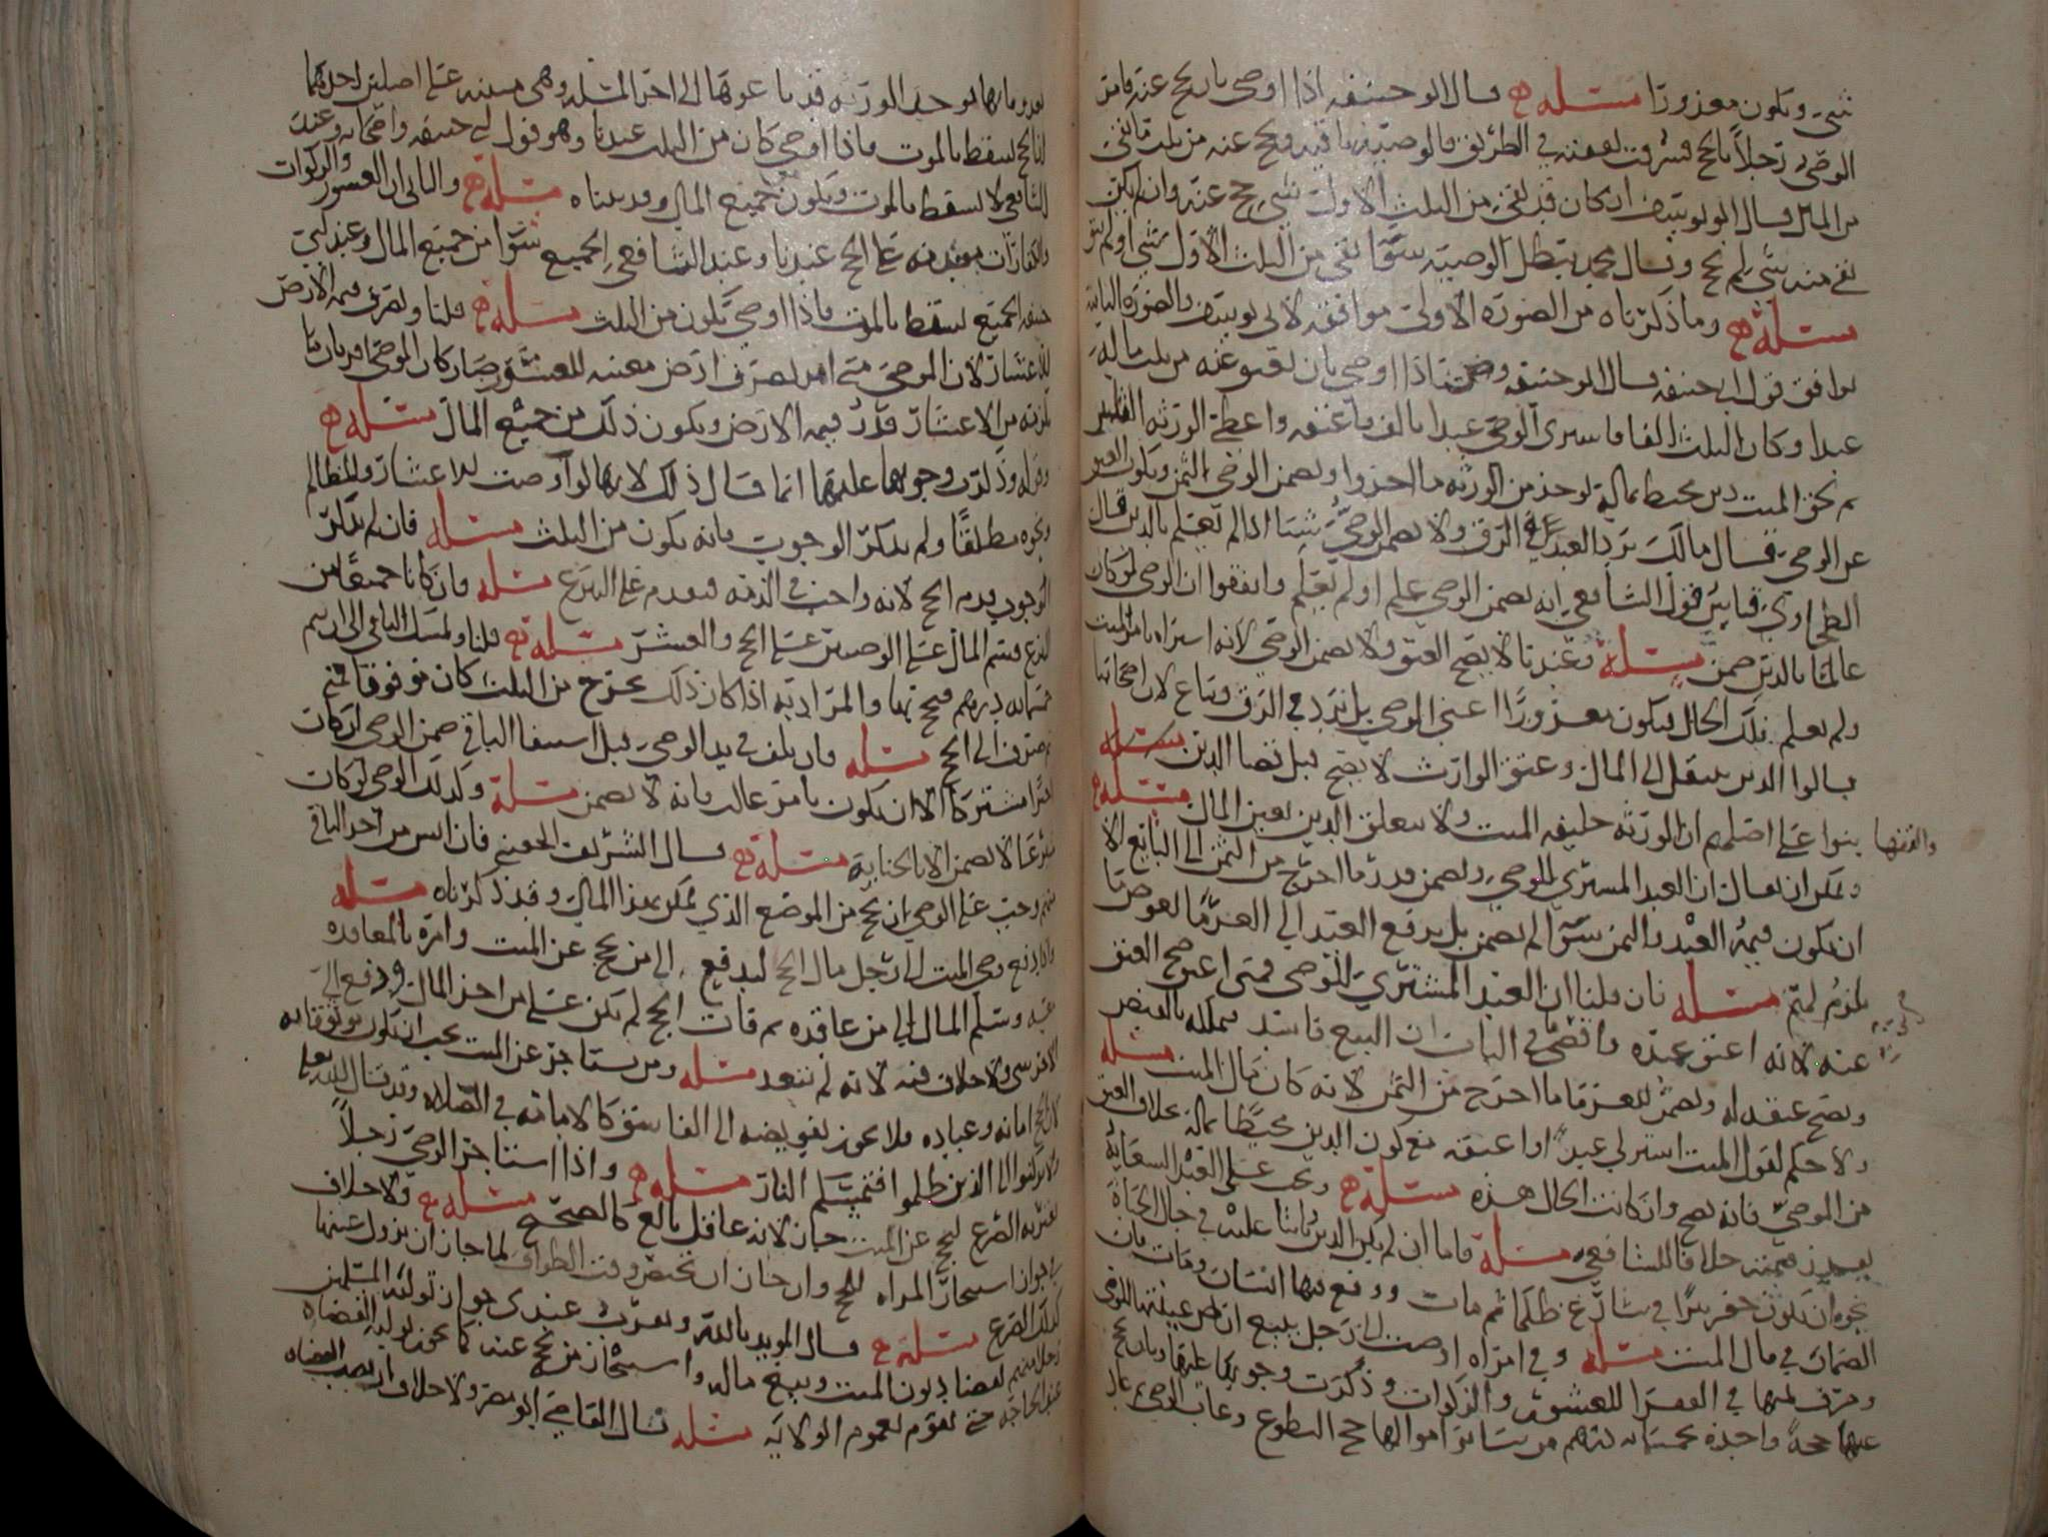 شي ويكون معزورا مسئله ح قال ابو حنيفه اذا اوصى بان يحج عنه فامر
الوصي رجلا بالحج فسرقت نفقته في الطريق فالوصيه باقيه ويحج عنه من ثلث ما بقي
من المال وقال ابو يوسف ان كان قد بقي من الثلث الاول شي حج عنه وان لم يكن
بقي منه شي لم يحج وقال محمد تبطل الوصيه سوا بقي من الثلث الاول شي او لم يبق
مسئله ح وما ذكرناه من الصوره الاولى موافقه لابي يوسف والصوره الثانيه
توافق قول ابي حنيفه قال ابو حنيفه اذا اوصى بان يعتق عنه من ثلث ماله
عبدا وكان الثلث الفا فاشترى الوصي عبدا بالف فاعتقه واعطى الورثه الفلس
ثم لحق الميت دين يحيط بماله يوخذ من الورثه ما اخذوا ويضمن الوصي الثمن ويكون العتق
عن الوصي وقال مالك يرد العبد في الرق ولا يضمن الوصي شيا اذا لم يعلم بالدين قال
الطحاوي قياس قول الشافعي انه يضمن الوصي علم او لم يعلم واتفقوا ان الوصي لو كان
عالما بالدين ضمن مسئله وعندنا لا يصح العتق ولا يضمن الوصي لانه اشتراه بامر الميت
ولم يعلم تلك الحال فيكون معزورا اعني الوصي بل يرد في الرق ويباع لان اصحابنا
قالوا الدين ينتقل الى المال وعتق الوارث لا يصح قبل قضا الدين مسئله
والفقها بنوا على اصلهم ان الورثه خليفه الميت ولا يتعلق الدين بعين المال مسئله ح
ويمكن ان يقال ان العبد المشتري للوصي ويضمن قدر ما اخرج من الثمن الى البايع الا
ان يكون قيمه العبد والثمن سوا لم يضمن بل يدفع العبد الى الغرما لعوض ما
يلزم لهم مسئله فان قلنا ان العبد المشتري للوصي فمتى اعتق صح العتق
عنه لانه اعتق عبده واقضى في الباب ان البيع فاسد فيملكه بالقبض
ويصح عتقه له ويضمن للغرما ما اخرج من الثمن لانه كان مال الميت مسئله
ولا حكم لقول الميت اشتر لي عبدا او اعتقه مع كون الدين محيطا بماله بخلاف العتق
من الموصي فانه يصح وان كانت الحال هذه مسئله ح ويجب على العبد السعايه
بقدر قيمته خلافا للشافعي مسئله فاما ان لم يكن الدين ثابتا عليه في حال الحياه
نحوه ان يكون حفر بيرا في شارع ظلما ثم مات ووقع فيها انسان ومات فان
الضمان في مال الميت مسئله وفي امراه اوصت الى رجل ببيع ارض عينتها للوصي
وصرف ثمنها في الفقرا للعشور والزكوات وذكرت وجوبها عليها وبان يحج
عنها حجه واحده بخمسمايه درهم من سائر اموالها حج التطوع وغاب الوصي
الى اخر المسئله وهي مبنيه على اصلين احدهما
ان الحج يسقط بالموت فاذا اوصى كان من الثلث عندنا وهو قول ابي حنيفه واصحابه وعند
الشافعي لا يسقط بالموت ويكون من جميع المال وقد بيناه مسئله ح والثاني ان العشور والزكوات
والكفارات مقدمه على الحج عندنا وعند الشافعي الجميع سوا من جميع المال وعند ابي
حنيفه الجميع يسقط بالموت فاذا اوصى يكون من الثلث مسئله ح قلنا ويصرف قيمه الارض
للاعشار لان الموصي متى امر بصرف ارض معينه للعشور صار كان الموصي اقر بان ما
يلزمه من الاعشار قدر قيمه الارض ويكون ذلك من جميع المال مسئله ح
وقوله وذكرت وجوبها عليها انما قال ذلك لانها لو اوصت للاعشار والمظالم
ونحوه مطلقا ولم يذكر الوجوب فانه يكون من الثلث مسئله فان لم يذكر
الوجوب قدم الحج لانه واجب في الذمه فيقدم على التبرع مسئله وان كانا جميعا من
التبرع قسم المال على الوصيتين على الحج والعشر مسئله ح قلنا ويمسك الباقي الى ان يتم
خمسمايه درهم فيحج بها والمراد به اذا كان ذلك يخرج من الثلث كان موقوفا حتى
يصرف الى الحج مسئله وان تلف في يد الوصي قبل استيفا الباقي ضمن الوصي ان كان
اجيرا مشتركا الا ان يكون بامر غالب فانه لا يضمن مسئله وكذلك الوصي لو كان
متبرعا لا يضمن الا بالجنايه مسئله ح قال الشريف الحسني فان ايس من اخذ الباقي
منهم وجب على الوصي ان يحج من الموضع الذي يمكن بهذا المال وقد ذكرناه مسئله
واذا دفع وصي الميت الى رجل مال الحج ليدفع الى من يحج عن الميت وامره بالمعاقده
عليه وسلم المال الى من عاقده ثم فات الحج لم يكن على من اخذ المال ودفع الى
الاخر شي ولا خلاف فيه لانه لم يتعد مسئله ومن يستاجر عن الميت يجب ان يكون موثوقا به
لان الحج امانه وعباده فلا يجوز تفويضه الى الفاسق كالامامه في الصلاه وقد قال الله تعالى
ولا تركنوا الى الذين ظلموا فتمسكم النار مسئله ح واذا استاجر الوصي رجلا
يعتريه الصرع ليحج عن الميت جاز لانه عاقل بالغ كالصحيح مسئله ح ولا خلاف
في جواز استيجار المراه للحج وان جاز ان تحيض وقت الطواف لما جاز ان يزول عنها
كذلك الصرع مسئله ح قال المويد بالله ويعرف عندي جواز توليه المسلمين
رجلا منهم لقضا ديون الميت وبيع ماله واستيجار من يحج عنه كما يجوز توليه القضاه
عند الحاجه حتى يقوم بعموم الولايه مسئله قال القاضي ابو مضر ولا خلاف ان نصب القضاه